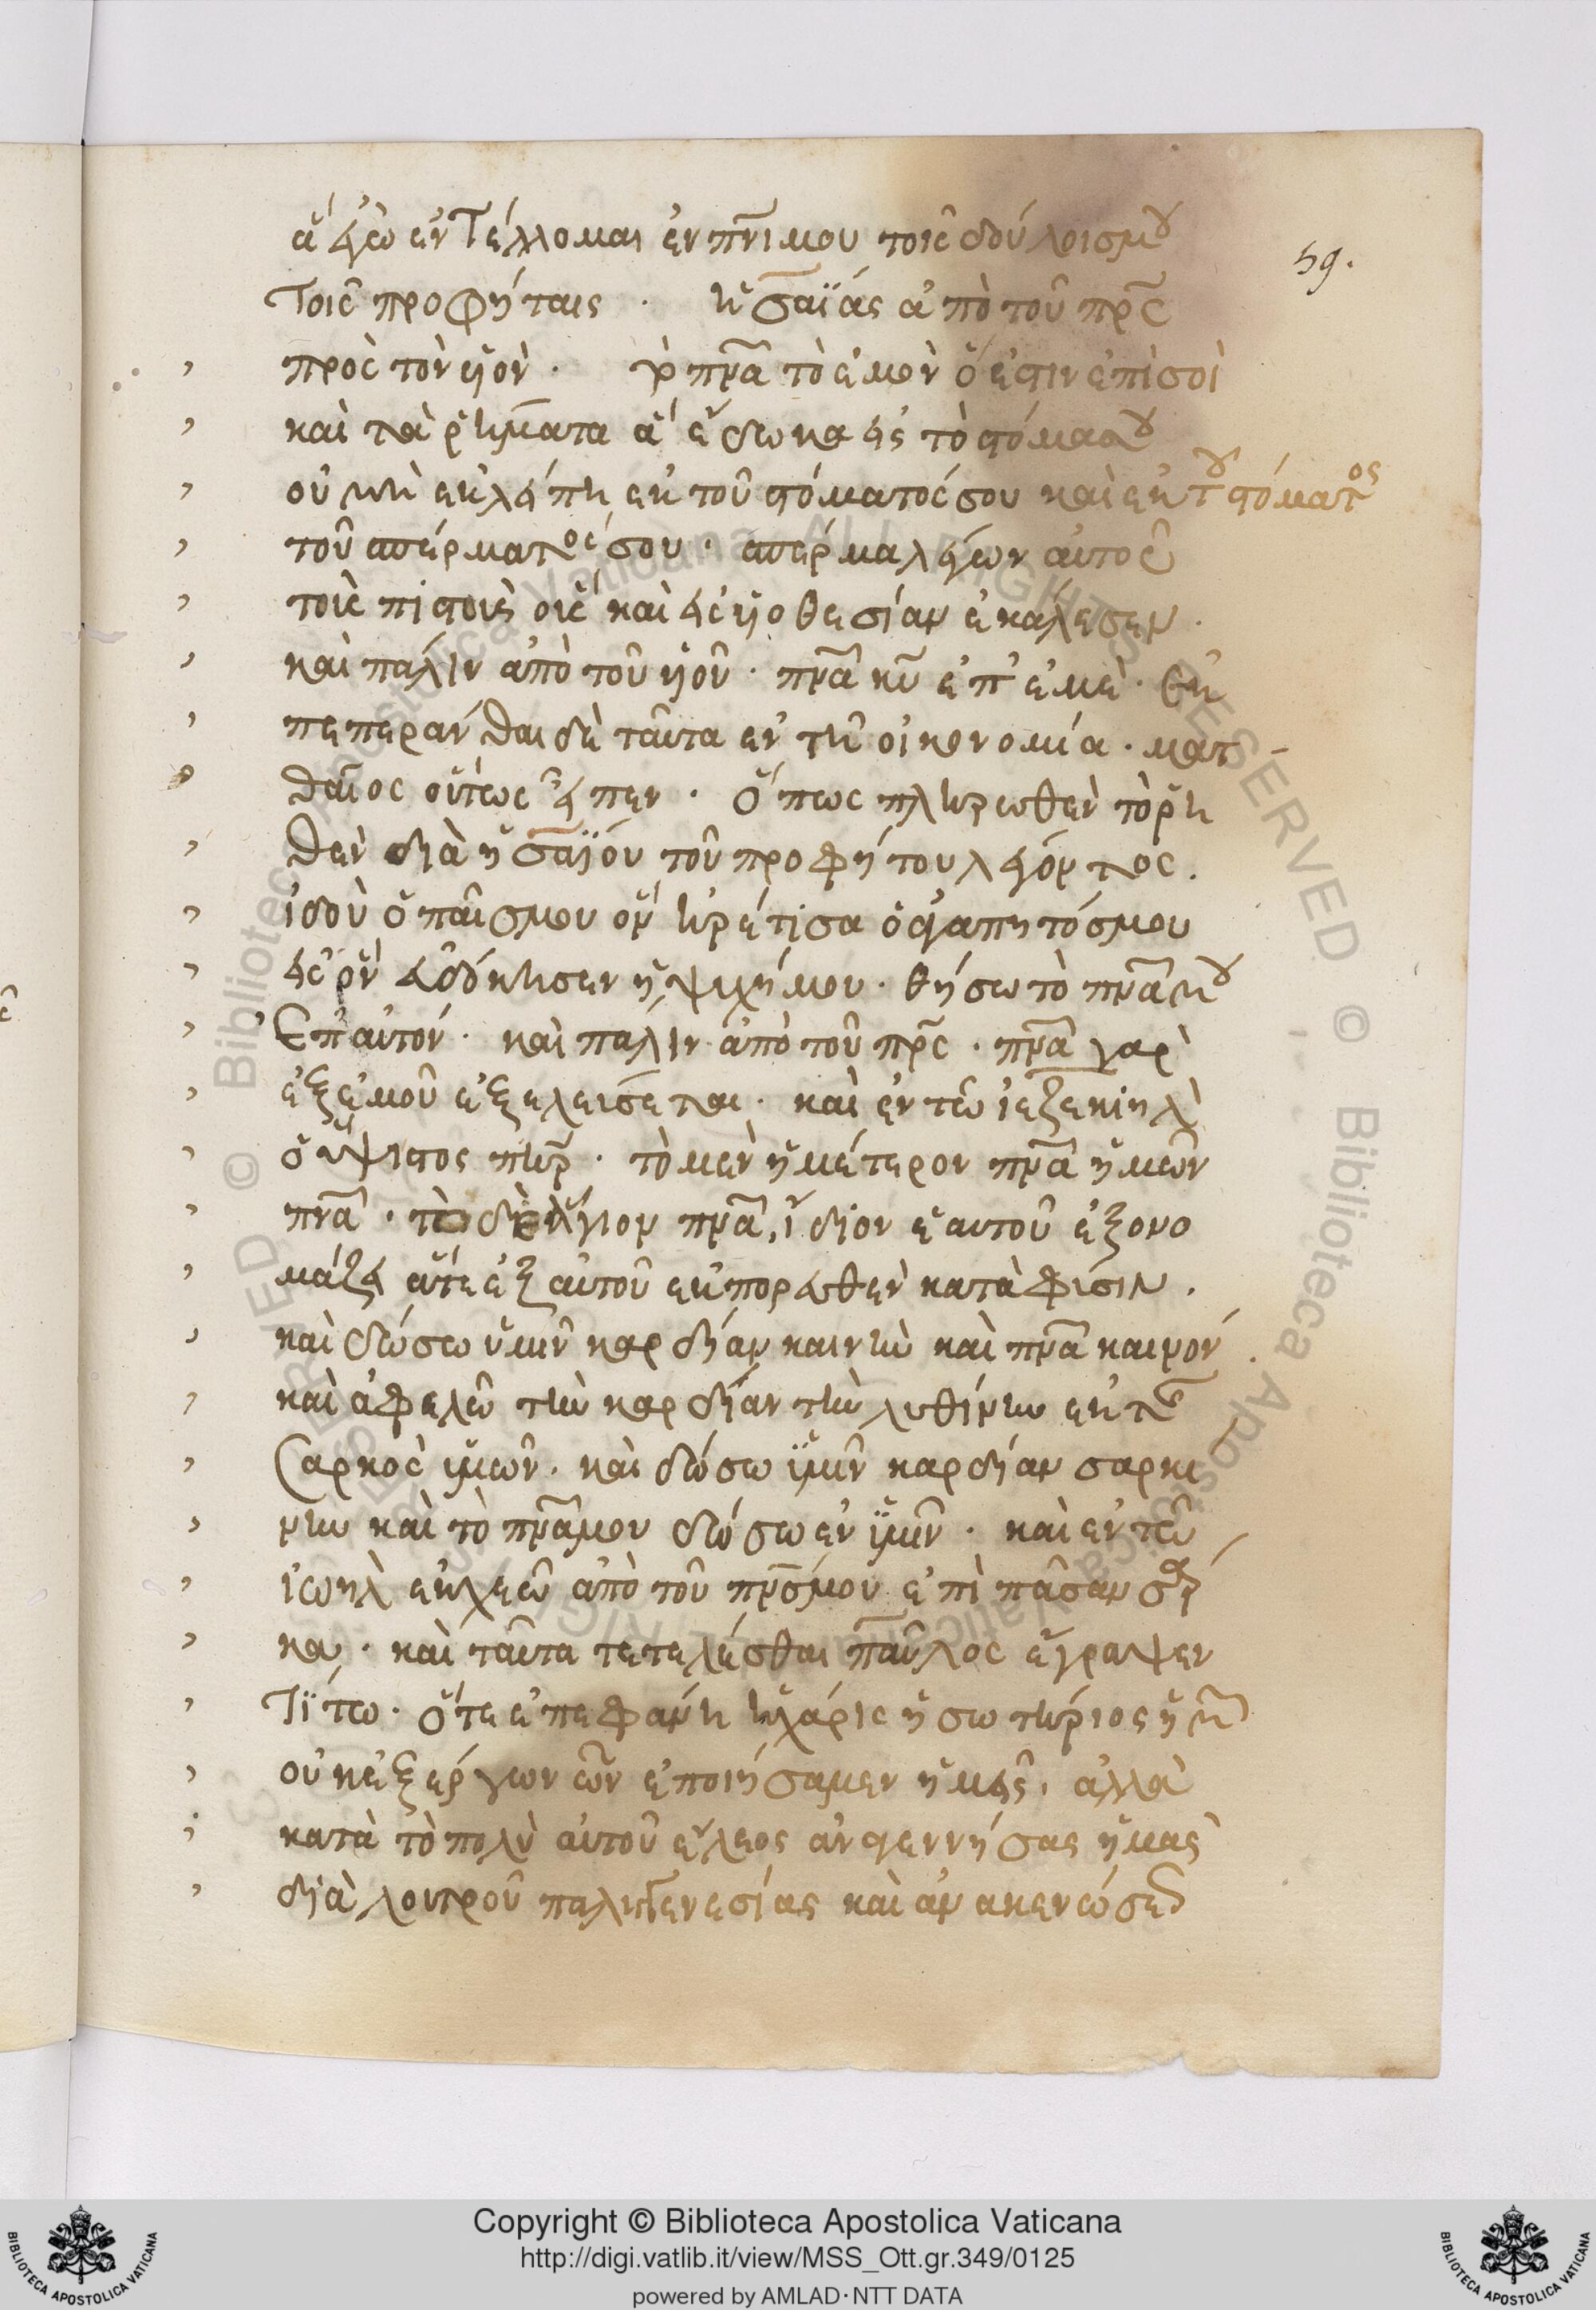 ἃ ἐγὼ ἐντέλλομαι ἐν πνι μου τοῖς δούλοις μου
59.
τοῖς προφήταις · ἡσαΐας ἀπὸ τοῦ πρς
πρὸς τὸν υἱὸν · τὸ πνα τὸ ἐμὸν ὅ ἐστιν ἐπὶ σοὶ
καὶ τὰ ῥήματα ἃ ἔδωκα εἰς τὸ στόμα σου
οὐ μὴ ἐκλείπη ἐκ τοῦ στόματός σου καὶ ἐκ τοῦ στόματος
τοῦ σπέρματός σου · σπέρμα λέγων αὐτοῦ
τοῖς πιστοῖς οἷς καὶ εἰς υἱοθεσίαν ἐκάλεσεν ·
καὶ πάλιν ἀπὸ τοῦ υἱοῦ · πνα κυ ἐπ' ἐμὲ · ἐκ
πεπεράνθαι δὲ ταῦτα ἐν τῆ οἰκονομία · ματ
θαῖος οὕτως εἶπεν · ὅπως πληρωθὲν τὸ ῥη
θὲν διὰ ἡσαϊόυ τοῦ προφήτου λέγόντος ·
ἰδοὺ ὁ παῖς μου ὃν ἡρέτισα ὁ ἀγαπητός μου
εἰς ὃν εὐδόκησεν ἡ ψυχή μου · θήσω τὸ πνα μου
ἐπ' αὐτόν · καὶ παλιν ἀπὸ τοῦ πρς · πνα γαρ
ἐξ ἐμοῦ ἐξελεύσεται · καὶ ἐν τῶ ἰεζεκιηλ
ὁ ὕψιστος πηρ · τὸ μὲν ἡμέτερον πνα ἡμῶν
πνα · τὸ δὲ ἅγιον πνα, ἴδιον ἑαυτοῦ ἐξονο
μάζει ἅτε ἐξ αὐτοῦ ἐκπορευθὲν κατὰ φύσιν ·
καὶ δώσω ὑμῖν καρδίαν καινὴν καὶ πνα καινόν ·
καὶ ἀφελῶ τὴν καρδίαν τὴν λυθίνην ἐκ τῆς
σαρκὸς ὑμῶν · καὶ δώσω ὑμῖν καρδίαν σαρκι
νην καὶ τὸ πνα μου δώσω ἐν ὑμῖν · καὶ ἐν τῶ
ἰωηλ ἐκχεῶ ἀπὸ τοῦ πνσ μου ἐπὶ πᾶσαν σάρ
κα · καὶ ταῦτα τετελέσθαι παῦλος ἔγραψεν
τίτω · ὅτε ἐπεφάνη ἡ χάρις ἡ σωτηρίος ἡμ
οὐκ ἐξ ἔργων ὧν ἐποιήσαμεν ἡμεῖς · ἀλλὰ
κατὰ τὸ πολὺ αὐτοῦ ἔλεος ἀνγεννήσας ἡμᾶς
διὰ λουτροῦ παλιγγενεσίας καὶ ἀνακενώσεως
Copyright © Biblioteca Apostolica Vaticana
http://digi.vatlib.it/view/MSS_Ott.gr.349/0125
powered by AMLAD·NTT DATA